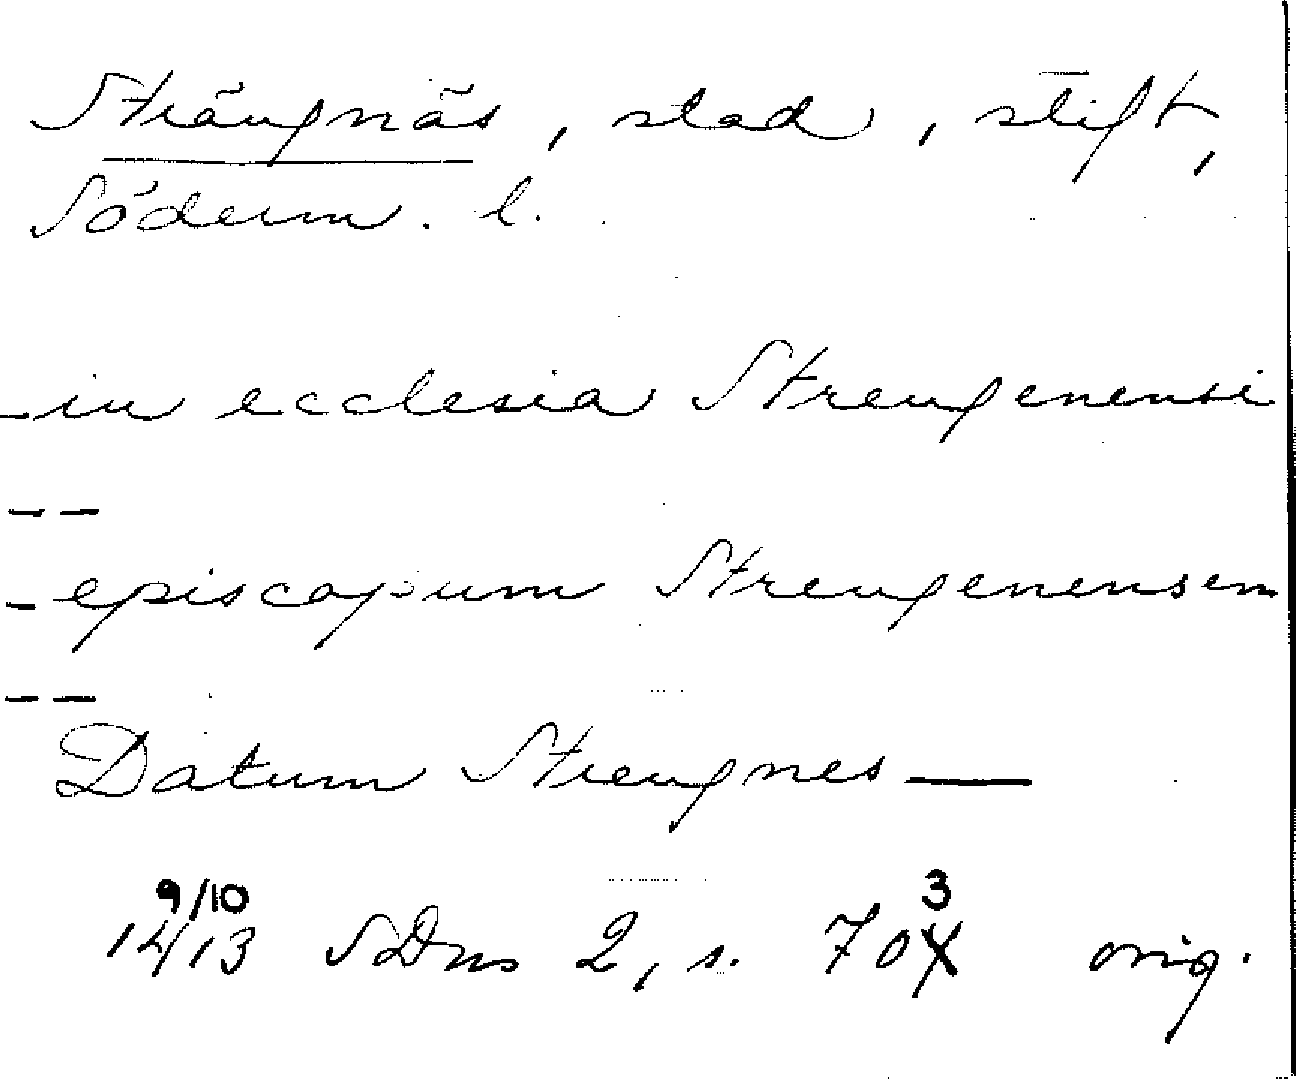 Strängnäs, stad, stift,
Söderm. l.
- in ecclesia Strengenensi
- -
- episcopum Strengenensem
- -
Datum Strengnes —
9/10 3
1413 SDns 2, s. 70X orig.